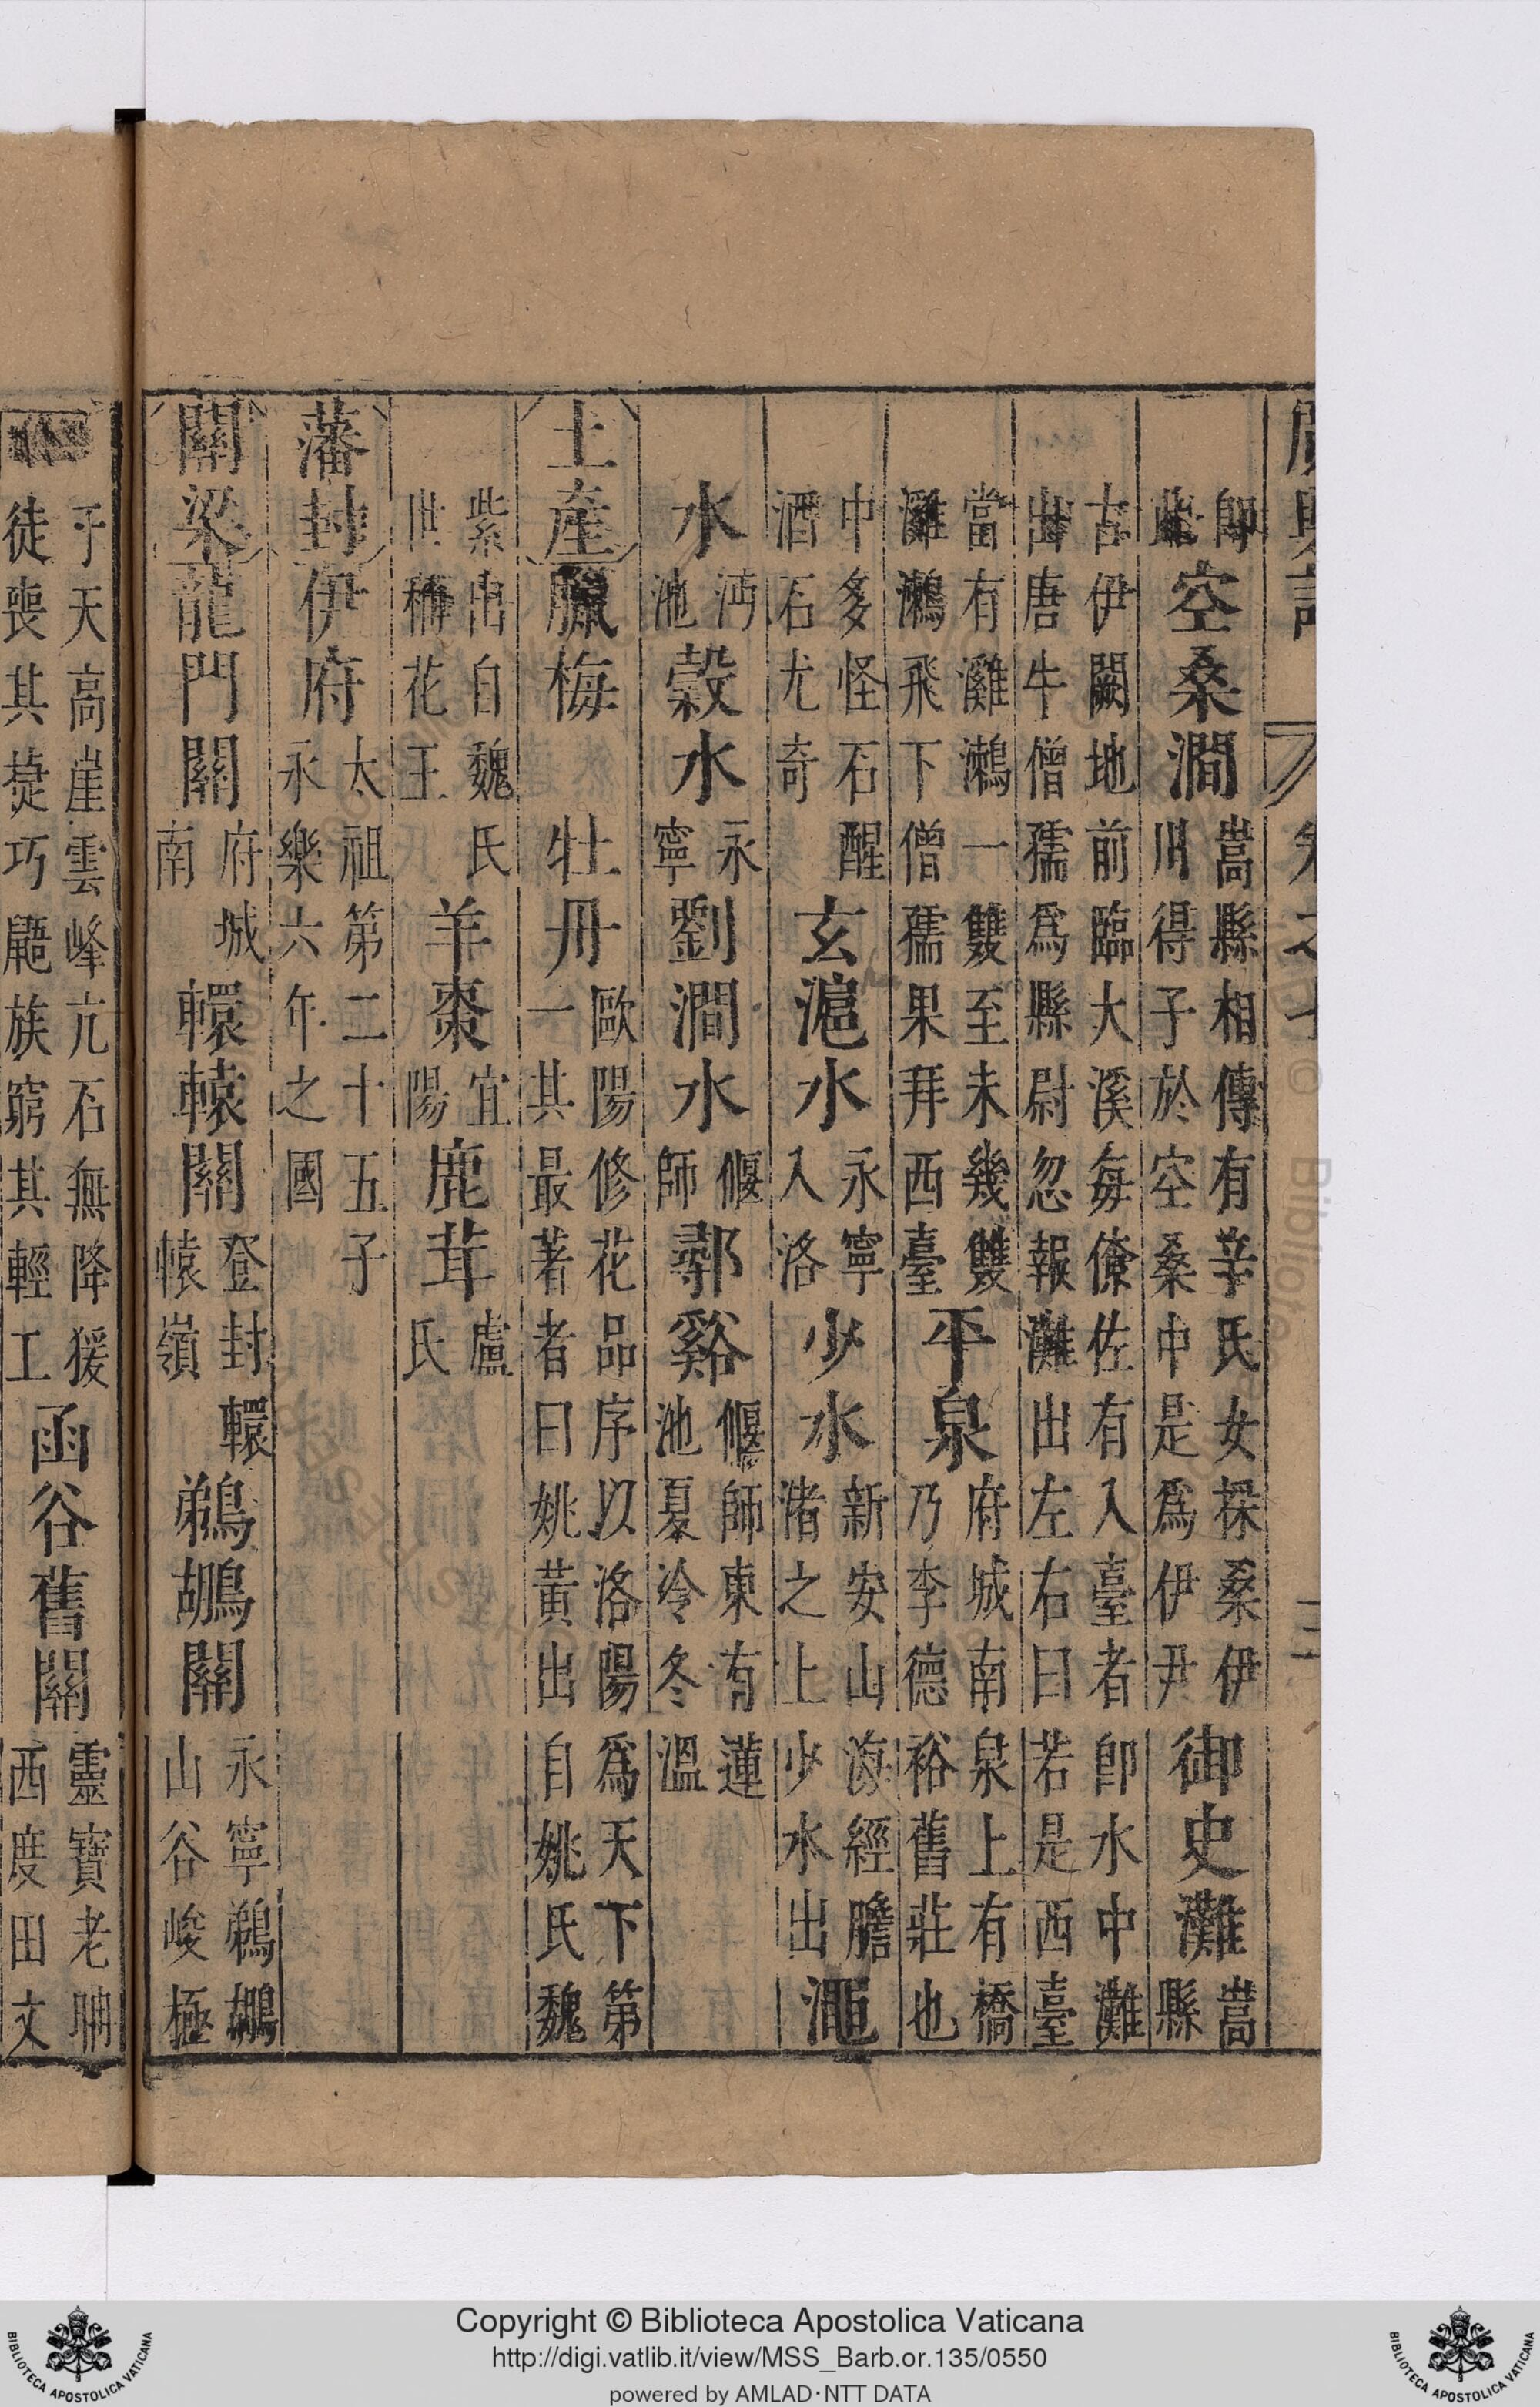 廣輿記 卷之
卽此 空桑澗 嵩縣相傳有辛氏女採桑伊川得子於空桑中是爲伊尹 御史灘 嵩縣
古伊闕地前臨大溪每僚佐有入臺者卽水中灘出唐牛僧孺爲縣尉忽報灘出左右曰若是西臺
當有灘鶒一雙至未幾雙灘鶒飛下僧孺果拜西臺 平泉 府城南泉上有橋乃李德裕舊莊也
中多怪石醒酒石尤奇 玄滬水 永寧入洛 少水 新安山海經膽渚之上少水出 澠
水 沔池 穀水 永寧 劉澗水 偃師 鄩谿 偃師東有蓮池夏冷冬溫
土產 臘梅 牡丹 歐陽修花品序以洛陽爲天下第一其最著者曰姚黃出自姚氏魏
紫出自魏氏世稱花王 羊棗 宜陽 鹿茸 盧氏
藩封 伊府 太祖第二十五子永樂六年之國
關梁 龍門關 府城南 轘轅關 登封轘轅嶺 鵜鶘關 永寧鵜鶘山谷峻極
于天高崖雲峰亢石無降猨徒喪其捷巧鼯族窮其輕工 函谷舊關 靈寶老聃西度田文
Copyright © Biblioteca Apostolica Vaticana
http://digi.vatlib.it/view/MSS_Barb.or.135/0550
powered by AMLAD·NTT DATA
BIBLIOTECA APOSTOLICA VATICANA
BIBLIOTECA APOSTOLICA VATICANA